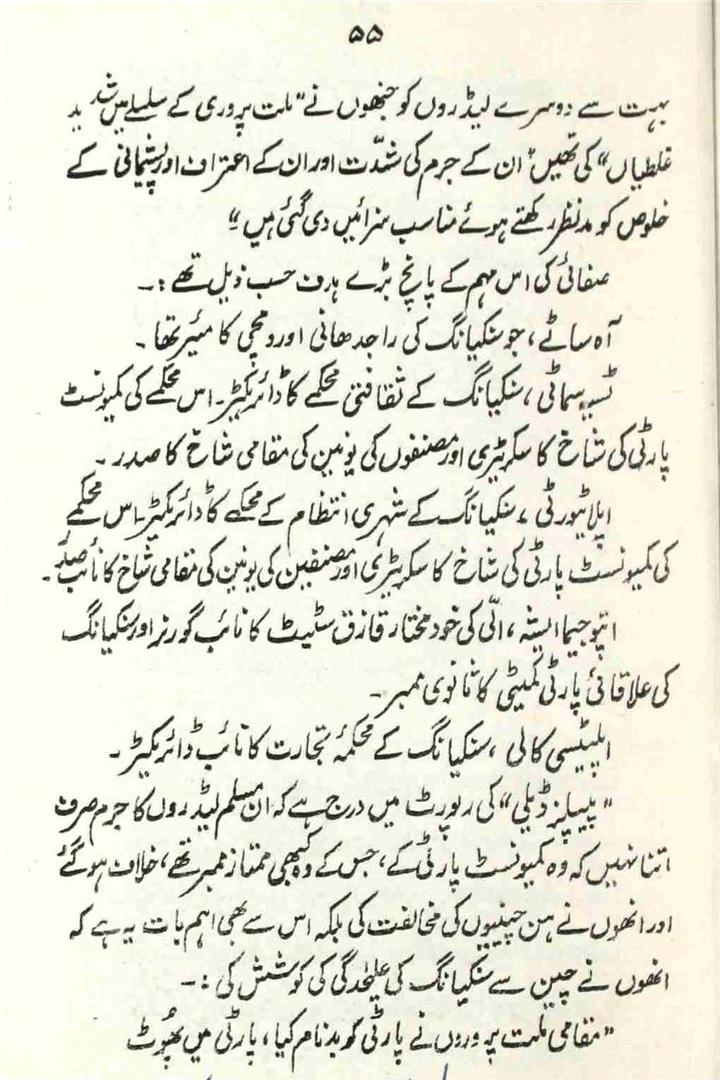 ۵۵
بہت سے دوسرے لیڈروں کو جنھوں نے "ملت پروری کے سلسلے میں شدید
غلطیاں" کی تھیں "ان کے جرم کی شدّت اور ان کے اعتراف اور پشیمانی کے
خلوص کو مدنظر رکھتے ہوئے مناسب سزائیں دی گئی ہیں"
صفائی کی اس مہم کے پانچ بڑے ہدف حسب ذیل تھے :۔
آہ سائے، جو سنکیانگ کی راجدھانی اورومچی کا میئر تھا۔
تسیہ سمائی، سنکیانگ کے ثقافتی محکمے کا ڈائریکٹر۔ اس محکمے کی کمیونسٹ
پارٹی کی شاخ کا سکریٹری اور مصنفوں کی یونین کی مقامی شاخ کا صدر۔
اپلا ٹیورٹی، سنکیانگ کے شہری انتظام کے محکمے کا ڈائریکٹر۔ اس محکمے
کی کمیونسٹ پارٹی کی شاخ کا سکریٹری اور مصنفین کی یونین کی مقامی شاخ کا نائب صدر۔
اپوجیما ایشہ، الّی کی خود مختار قازق سٹیٹ کا نائب گورنر اور سنکیانگ
کی علاقائی پارٹی کمیٹی کا ثانوی ممبر۔
ایلپٹیسی کالی، سنکیانگ کے محکمۂ تجارت کا نائب ڈائریکٹر۔
"پیپلز ڈیلی" کی رپورٹ میں درج ہے کہ ان مسلم لیڈروں کا جرم صرف
اتنا نہیں کہ وہ کمیونسٹ پارٹی کے، جس کے وہ کبھی ممتاز ممبر تھے، خلاف ہو گئے
اور انھوں نے ہن چینیوں کی مخالفت کی بلکہ اس سے بھی اہم بات یہ ہے کہ
انھوں نے چین سے سنکیانگ کی علیٰحدگی کی کوشش کی :۔
"مقامی ملت پروروں نے پارٹی کو بدنام کیا، پارٹی میں پھُوٹ